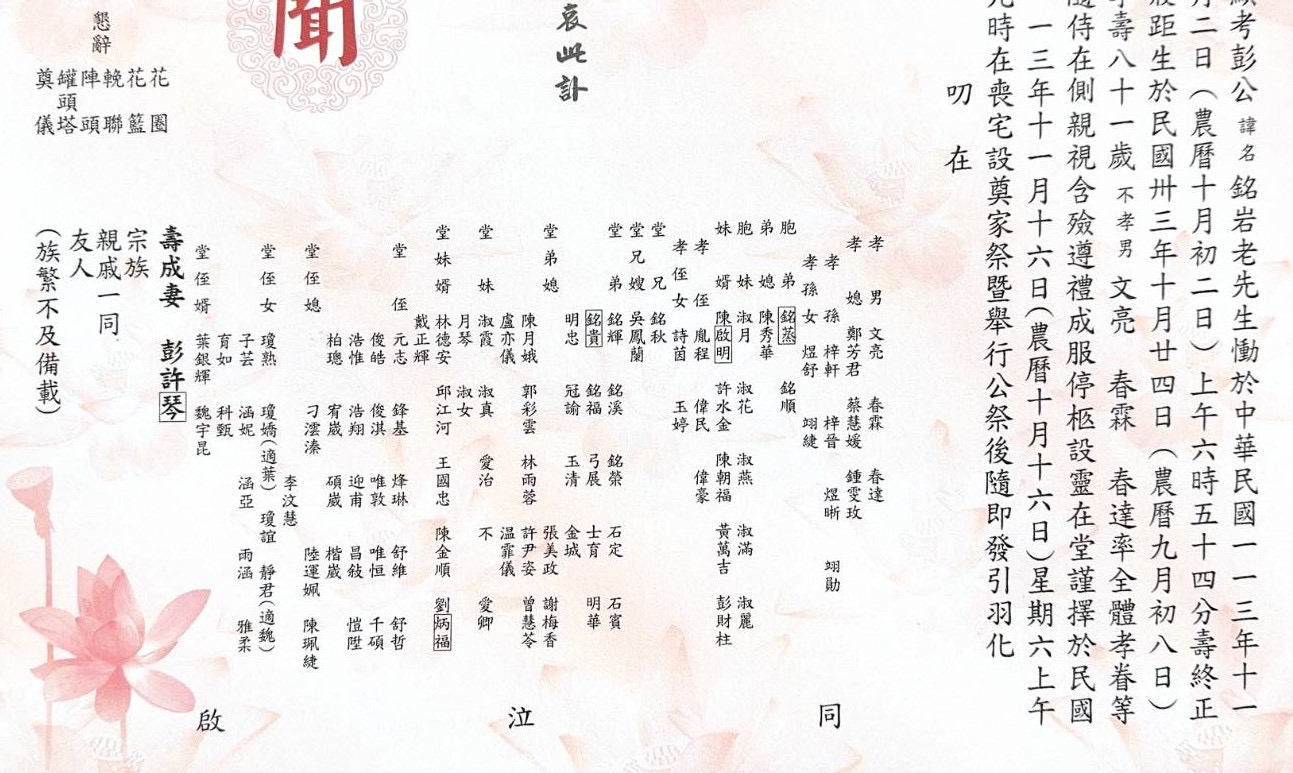 顯考彭公諱名銘岩老先生慟於中華民國一一三年十一
月二日(農曆十月初二日)上午六時五十四分壽終正
寢距生於民國卅三年十月廿四日(農曆九月初八日)
享壽八十一歲 不孝男 文亮 春霖 春達率全體孝眷等
隨侍在側親視含殮遵禮成服停柩設靈在堂謹擇於民國
一一三年十一月十六日(農曆十月十六日)星期六上午
九時在喪宅設奠家祭暨舉行公祭後隨即發引羽化
叨在
哀此訃
聞
懇辭
花圈
花籃
輓聯
陣頭
罐頭塔
奠儀
孝男 文亮 春霖 春達
孝媳 鄭芳君 蔡慧媛 鍾雯玫
孝孫 梓軒 梓晉 煜晰 翊勛
孝孫女 煜舒 翊緁
胞弟 銘蒸 銘順
弟媳 陳秀華
胞妹 淑月 淑花 淑燕 淑滿 淑麗
妹婿 陳啟明 許水金 陳朝福 黃萬吉 彭財柱
孝侄 胤程 偉民 偉豪
孝侄女 詩茵 玉婷
堂兄 銘秋
堂兄嫂 吳鳳蘭
堂弟 銘輝 銘溪 銘榮 石定 石賓
銘貴 銘福 弓展 士育 明華
明忠 冠諭 玉清 金城
堂弟媳 張美政 謝梅香
陳月娥 郭彩雲 林雨蓉 許尹姿 曾慧苓
盧亦儀 温霏儀
堂妹 淑霞 淑真 愛治 不 愛卿
月琴 淑女
堂妹婿 林德安 邱江河 王國忠 陳金順 劉炳福
戴正輝
堂侄 元志 鋒基 烽琳 舒維 舒哲
俊皓 俊淇 唯敦 唯恒 千碩
浩惟 浩翔 迎甫 昌敍 愷陞
柏璁 宥崴 碩崴 楷崴
堂侄媳 刁澐溱 陸運姵 陳珮緁
李汶慧
堂侄女 瓊熟 瓊嬌(適葉) 瓊誼 靜君(適魏)
子芸 涵妮 涵亞 雨涵 雅柔
育如 科甄
堂侄婿 葉銀輝 魏宇昆
同
泣
啟
壽成妻 彭許琴
宗族
親戚一同
友人
(族繁不及備載)